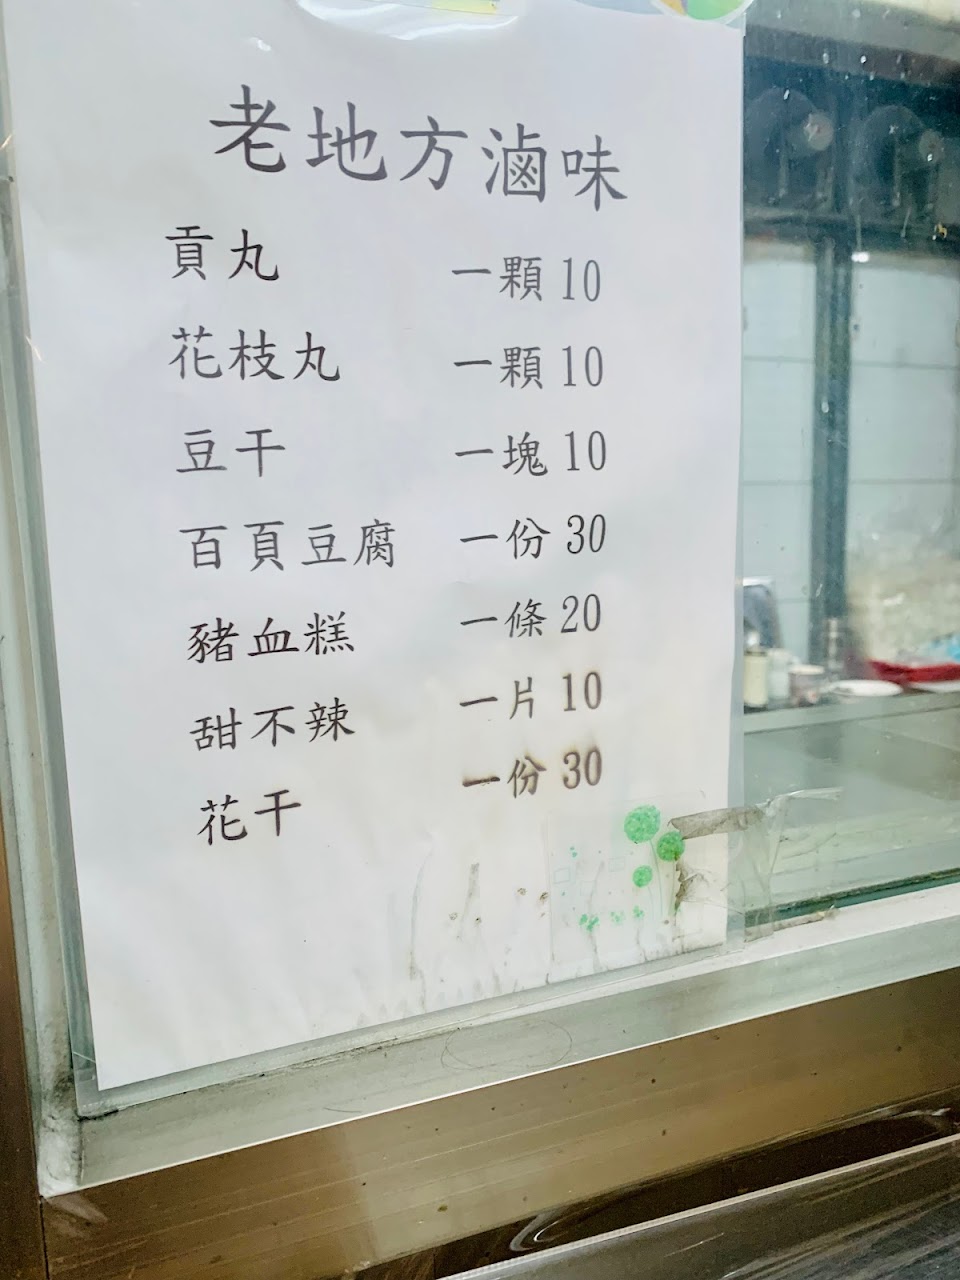 老地方滷味
貢丸 一顆10
花枝丸 一顆10
豆干 一塊10
百頁豆腐 一份30
豬血糕 一條20
甜不辣 一片10
花干 一份30